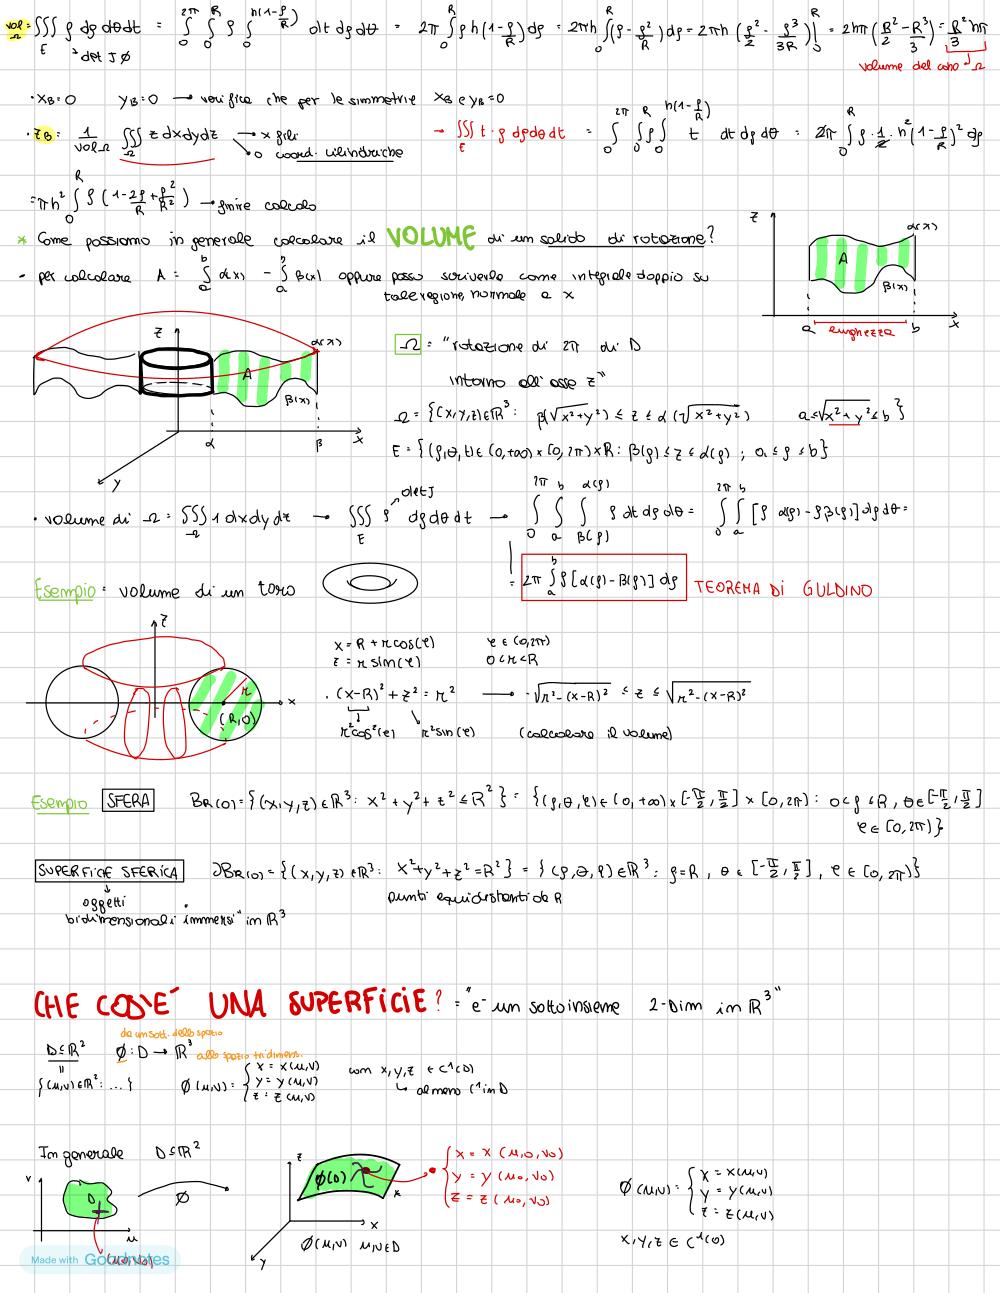 vol Ω = ∭_E ρ dρ dθ dt = ∫_0^{2π} ∫_0^R ρ ∫_0^{h(1-ρ/R)} dt dρ dθ = 2π ∫_0^R ρ h(1-ρ/R) dρ = 2πh ∫_0^R (ρ - ρ²/R) dρ = 2πh (ρ²/2 - ρ³/3R)|_0^R = 2hπ (R²/2 - R²/3) = R²hπ/3
det J ϕ
volume del cono Ω
· x_B = 0 y_B = 0 → verifica che per le simmetrie x_B e y_B = 0
· z_B = 1/volΩ ∭_Ω z dxdydz → x fili
→ coord. cilindriche
→ ∭_E t · ρ dρdθdt = ∫_0^{2π} ∫_0^R ρ ∫_0^{h(1-ρ/R)} t dt dρ dθ = 2π ∫_0^R ρ · 1/2 · h² (1-ρ/R)² dρ
= πh² ∫_0^R ρ (1 - 2ρ/R + ρ²/R²) → finire calcolo
* Come possiamo in generale calcolare il VOLUME di un solido di rotazione?
- per calcolare A = ∫_a^b α(x) - ∫_a^b β(x) oppure posso scriverlo come integrale doppio su
tale regione normale a x
z α(x) A β(x) a b x
lunghezza
z α(x) A β(x) α β x y
Ω = "rotazione di 2π di D
intorno all'asse z"
Ω = {(x,y,z) ∈ R³: β(√x²+y²) ≤ z ≤ α(√x²+y²) a ≤ √x²+y² ≤ b}
E = {(ρ,θ,t) ∈ (0,+∞) × [0,2π) × R : β(ρ) ≤ z ≤ α(ρ) ; a ≤ ρ ≤ b}
det J
· volume di Ω = ∭_Ω 1 dxdydz → ∭_E ρ dρdθdt → ∫_0^{2π} ∫_a^b ∫_{β(ρ)}^{α(ρ)} ρ dt dρ dθ = ∫_0^{2π} ∫_a^b [ρ α(ρ) - ρβ(ρ)] dρ dθ =
= 2π ∫_a^b ρ [α(ρ) - β(ρ)] dρ TEOREMA DI GULDINO
Esempio: volume di un toro
z r (R,0) x
x = R + r cos(φ) φ ∈ (0,2π)
z = r sin(φ) 0 < r < R
· (x-R)² + z² = r² → -√r²-(x-R)² ≤ z ≤ √r²-(x-R)²
r²cos²(φ) r²sin(φ) (calcolare il volume)
Esempio SFERA B_R(0) = {(x,y,z) ∈ R³: x² + y² + z² ≤ R²} = {(ρ,θ,φ) ∈ (0,+∞) × [-π/2, π/2] × [0,2π) : 0 < ρ ≤ R, θ ∈ [-π/2, π/2]
φ ∈ [0,2π)}
SUPERFICIE SFERICA ∂B_R(0) = {(x,y,z) ∈ R³: x²+y²+z² = R²} = {(ρ,θ,φ) ∈ R³: ρ=R, θ ∈ [-π/2, π/2], φ ∈ [0,2π)}
oggetti punti equidistanti da R
bidimensionali "immersi" in R³
CHE COS'E' UNA SUPERFICIE? = "è un sottoinsieme 2-Dim in R³"
da un sott. dello spazio
D ⊆ R² ϕ : D → R³ allo spazio tridimens.
{(u,v) ∈ R²: ...} ϕ(u,v) = { x = x(u,v)
y = y(u,v)
z = z(u,v)
con x,y,z ∈ C¹(D)
↳ almeno C¹ in D
In generale D ⊆ R²
v D u ϕ
z ϕ(D) x y
ϕ(u,v) u,v ∈ D
x = x(u0,v0)
y = y(u0,v0)
z = z(u0,v0)
ϕ(u,v) = { x = x(u,v)
y = y(u,v)
z = z(u,v)
x,y,z ∈ C¹(D)
Made with Goodnotes